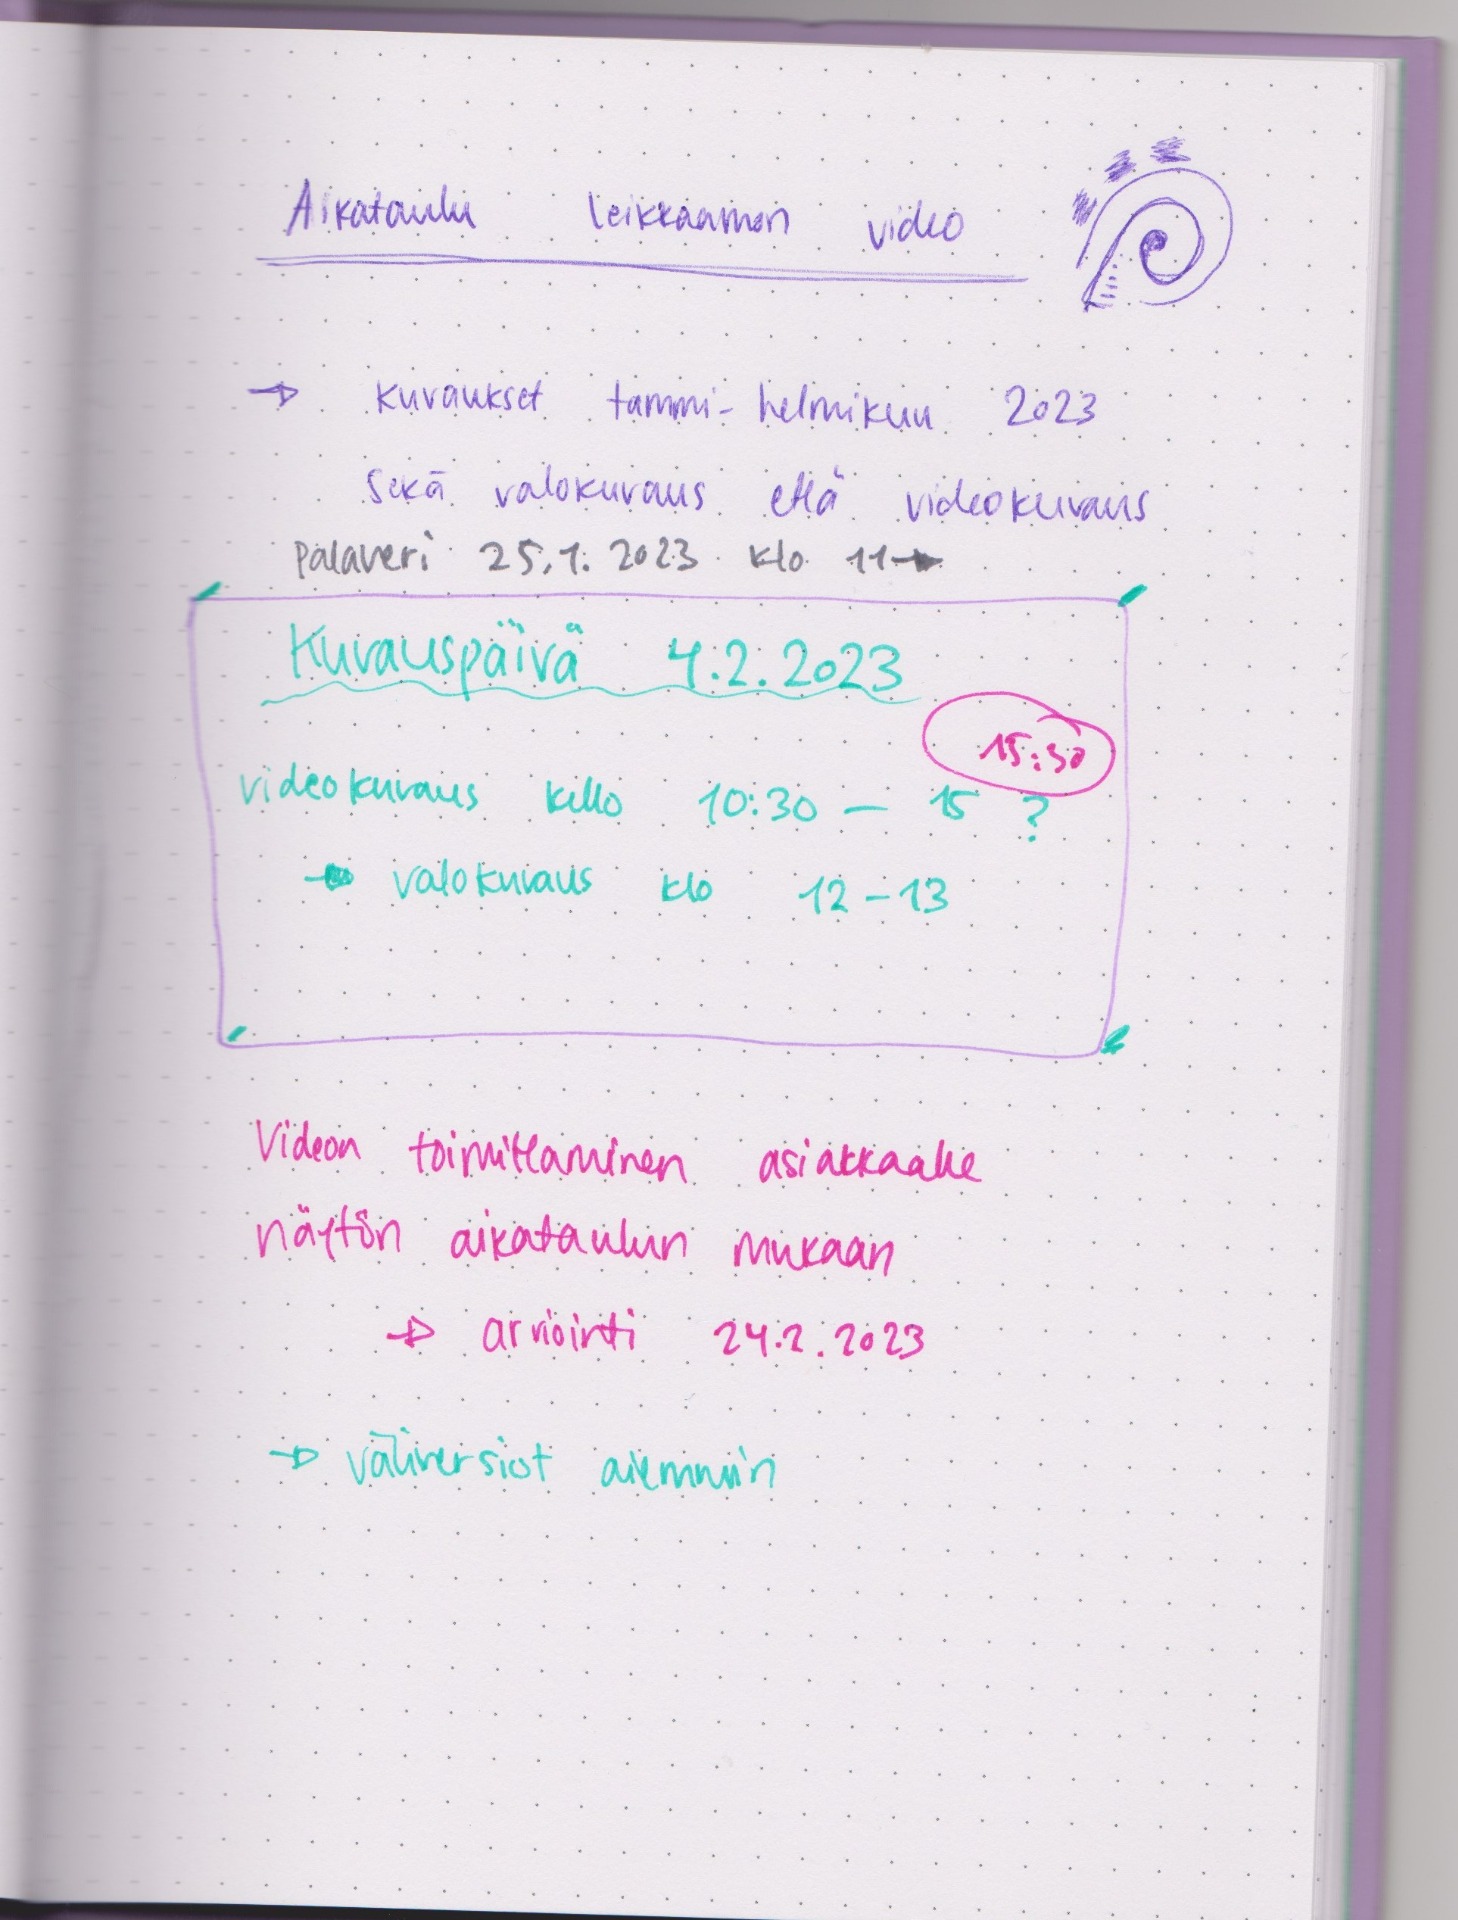 Aikataulu leikkaamon video
→ kuvaukset tammi-helmikuu 2023
sekä valokuvaus että videokuvaus
palaveri 25.1.2023 klo 11→
Kuvauspäivä 4.2.2023
15:30
videokuvaus kello 10:30 — 15 ?
→ valokuvaus klo 12-13
Videon toimittaminen asiakkaalle
näytön aikataulun mukaan
→ arviointi 24.2.2023
→ väliversiot aiemmin